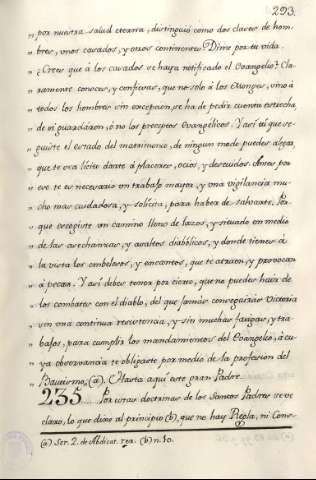 293.
„ por nuestra salud eterna, distinguió como dos clases de hom-
„ bres, unos casados, y otros continentes. Dime por tu vida.
„ ¿Crees que á los casados se haya notificado el Evangelio? Cla-
„ ramente conoces, y confiesas, que no solo á los Monges, sino á
„ todos los hombres sin excepcion, se ha de pedir cuenta estrecha,
„ de si guardáron, ó no los preceptos Evangélicos. Y así tú que se-
„ guiste el estado del matrimonio, de ningun modo puedes alegar,
„ que te sea lícito darte á placeres, ocios, y descuidos. Antes por
„ eso te es necesario un trabajo mayor, y una vigilancia mu-
„ cho mas cuidadosa, y solícita, para haber de salvarte. Por-
„ que escogiste un camino lleno de lazos, y situado en medio
„ de las asechanzas, y asaltos diabólicos, y donde tienes á
„ la vista los embelesos, y encantos, que te atraen, y provocan
„ á pecar. Y así debes tener por cierto, que no puedes huir de
„ los combates con el diablo, del que jamás conseguirás Victoria
„ sin una continua resistencia, y sin muchas fatigas, y tra-
„ bajos, para cumplir los mandamientos del Evangelio, á cu-
„ ya observancia te obligaste por medio de la profesion del
„ Bautismo. (a). Hasta aquí este gran Padre.
235. Por estas doctrinas de los Santos Padres se ve
claro, lo que dixe al principio (b), que no hay Regla, ni Cons-
(a) Ser. 2. de Abdicat. rer. (b) n. 10.